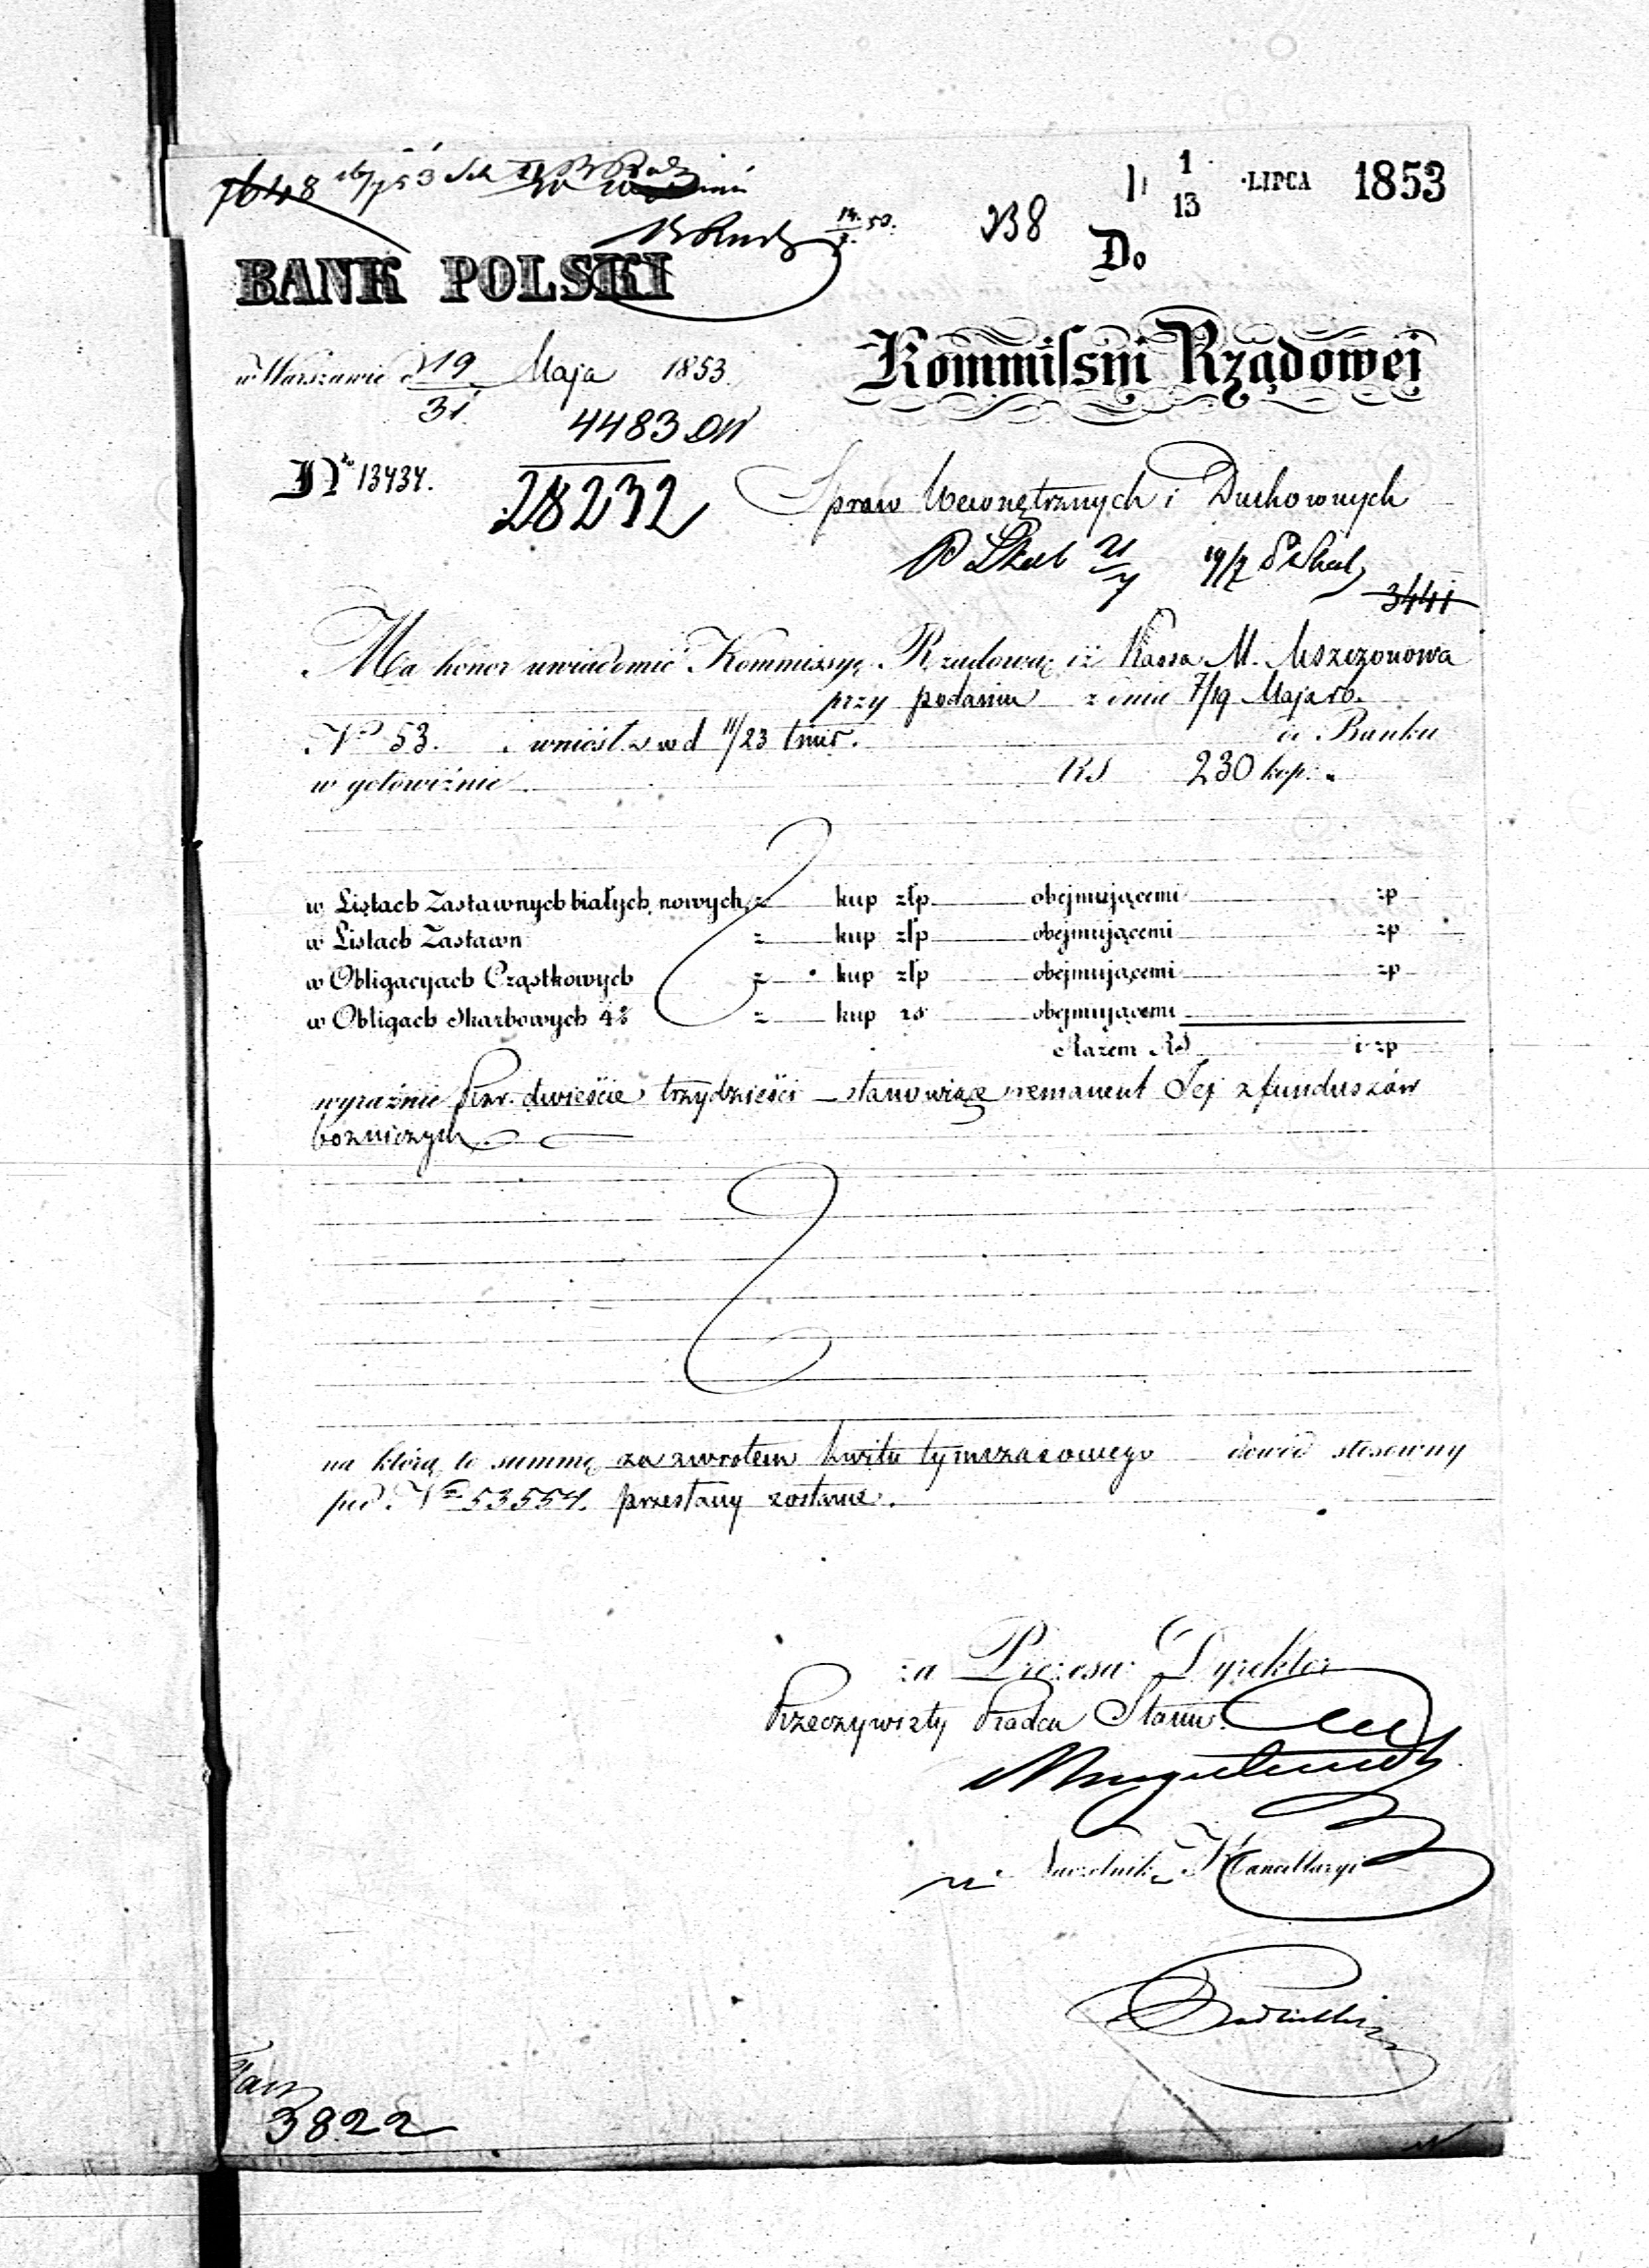 7648 16/7 53
1/13 LIPCA 1853
14/7 53.
238
Do
BANK POLSKI
Kommissyi Rządowej
w Warszawie d 19/31 Maja 1853.
4483 DW
No 13434.
28232
Spraw Wewnętrznych i Duchownych
P Skab 21/7 19/7 P Skab
3441
Ma honor uwiadomić Kommissyę Rządową iż Kassa M. Mszczonowa
przy podaniu z dnia 7/19 Maja rb.
No 53. wniosł. w d 11/23 tmir. do Banku
w gotowiźnie RS 230 kop. "
w Listach Zastawnych białych nowych z kup złp obejmującemi zp
w Listach Zastawn z kup złp obejmującemi zp
w Obligacyjach Cząstkowych z kup złp obejmującemi zp
w Obligach Skarbowych 4% z kup rs obejmującemi
Razem RS i zp
wyraźnie Rsr. dwieście trzydzieści – stanowiące remanent Jej z funduszów
bożniczych.
na którą to summę za zwrotem kwitu tymczasowego dowód stosowny
pod No 53554. przesłany zostanie.
za Prezesa Dyrektor
Rzeczywisty Radca Stanu
Naczelnik Kancellaryi
3822